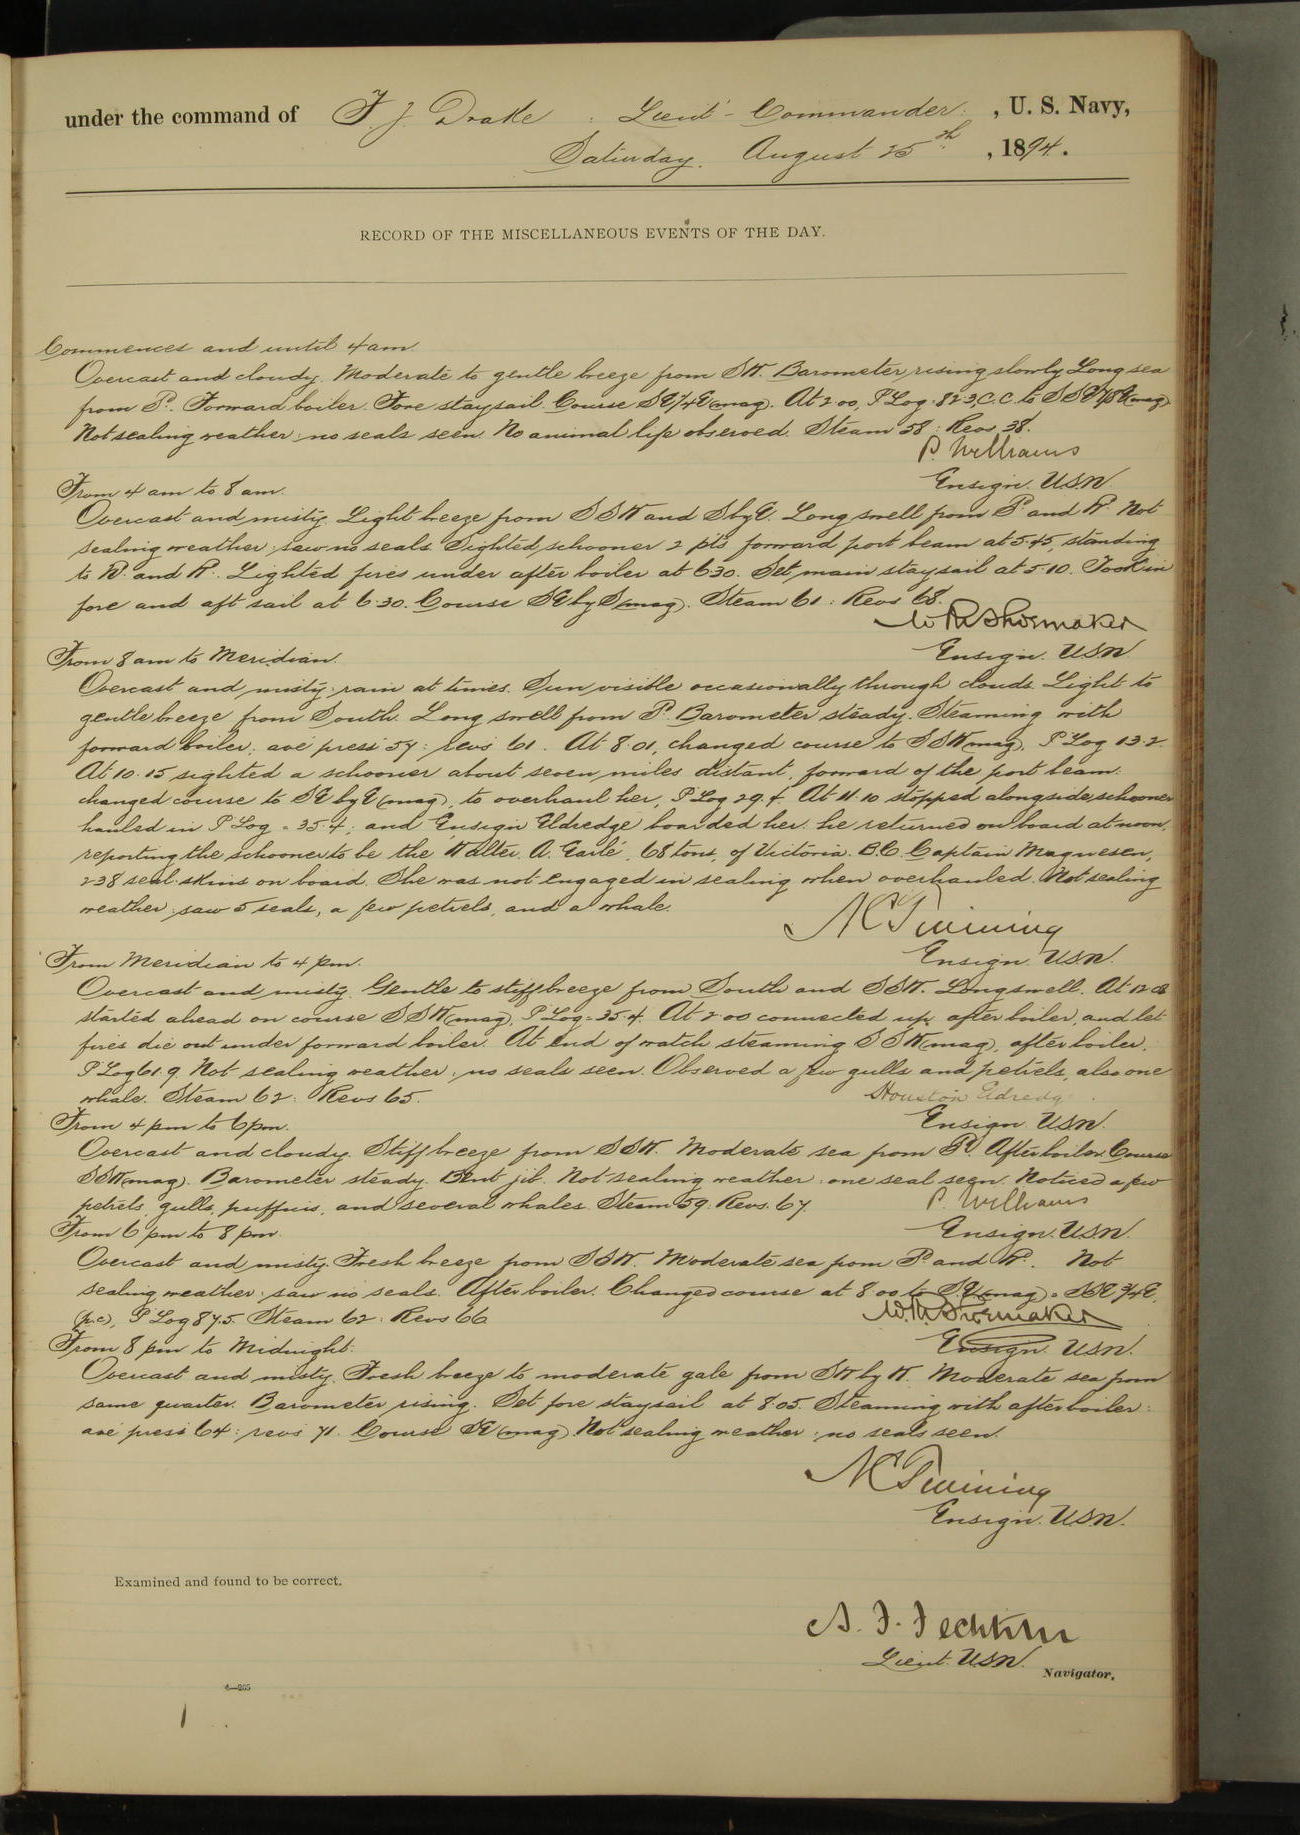 under the command of F. J. Drake, Lieut-Commander, U. S. Navy,
Saturday. August 25th, 1894.
RECORD OF THE MISCELLANEOUS EVENTS OF THE DAY.
Commences and until 4 am.
Overcast and cloudy. Moderate to gentle breeze from SW. Barometer rising slowly Long sea
from Sd. Forward boiler. Fore staysail. Course SE 1/4 E (mag). At 2.00, P Log 82.3, C.C. to SSE 7/8 E (mag)
Not sealing weather: no seals seen. No animal life observed. Steam 58: Revs 38.
P. Williams
Ensign. USN.
From 4 am to 8 am.
Overcast and misty. Light breeze from SSW and S by E. Long swell from Sd and Wd. Not
sealing weather; saw no seals. Sighted schooner 2 pts forward port beam at 5.45, standing
to Nd. and Wd. Lighted fires under after boiler at 6.30. Set main staysail at 5.10. Took in
fore and aft sail at 6.30. Course SE by S (mag). Steam 61: Revs 68.
W R Shoemaker
Ensign. USN
From 8 am to Meridian.
Overcast and misty; rain at times. Sun visible occasionally through clouds. Light to
gentle breeze from South. Long swell from Sd. Barometer steady. Steaming with
forward boiler; ave press 57: revs 61. At 8.01, changed course to SSW (mag), P Log 13.2.
At 10.15 sighted a schooner about seven miles distant, forward of the port beam:
changed course to SE by E (mag), to overhaul her, P Log 29.4. At 11.10 stopped alongside schooner
hauled in P Log = 35.4; and Ensign Eldredge boarded her: he returned on board at noon,
reporting the schooner to be the Walter A. Earle, 68 tons, of Victoria. B.C. Captain Magnesen,
238 seal-skins on board. She was not engaged in sealing when overhauled. Not sealing
weather; saw 5 seals, a few petrels, and a whale.
N C Twining
Ensign. USN.
From Meridian to 4 pm.
Overcast and misty. Gentle to stiff breeze from South and SSW. Long swell. At 12.08
started ahead on course SSW (mag), P Log = 35.4. At 2.00 connected up after boiler, and let
fires die out under forward boiler. At end of watch steaming SSW (mag), after boiler.
P Log 61.9. Not sealing weather; no seals seen. Observed a few gulls and petrels, also one
whale. Steam 62: Revs 65.
Houston Eldredge
Ensign USN.
From 4 pm to 6 pm.
Overcast and cloudy. Stiff breeze from SSW. Moderate sea from Sd. After boiler. Course
SSW (mag). Barometer steady. Bent jib. Not sealing weather: one seal seen. Noticed a few
petrels, gulls, puffins, and several whales. Steam 59. Revs. 67.
P. Williams
Ensign. USN.
From 6 pm to 8 pm.
Overcast and misty. Fresh breeze from SSW. Moderate sea from Sd and Wd. Not
sealing weather; saw no seals. After boiler. Changed course at 8.00 to SE (mag) = SSE 3/4 E,
(p.c), P Log 87.5. Steam 62: Revs 66
W. R. Shoemaker
Ensign. USN.
From 8 pm to Midnight.
Overcast and misty. Fresh breeze to moderate gale from SW by W. Moderate sea from
same quarter. Barometer rising. Set fore staysail at 8.05. Steaming with after boiler:
ave press 64: revs 71. Course SE (mag). Not sealing weather; no seals seen.
N C Twining
Ensign. USN.
Examined and found to be correct.
A. F. Fechteler
Lieut. USN.
Navigator.
4—205